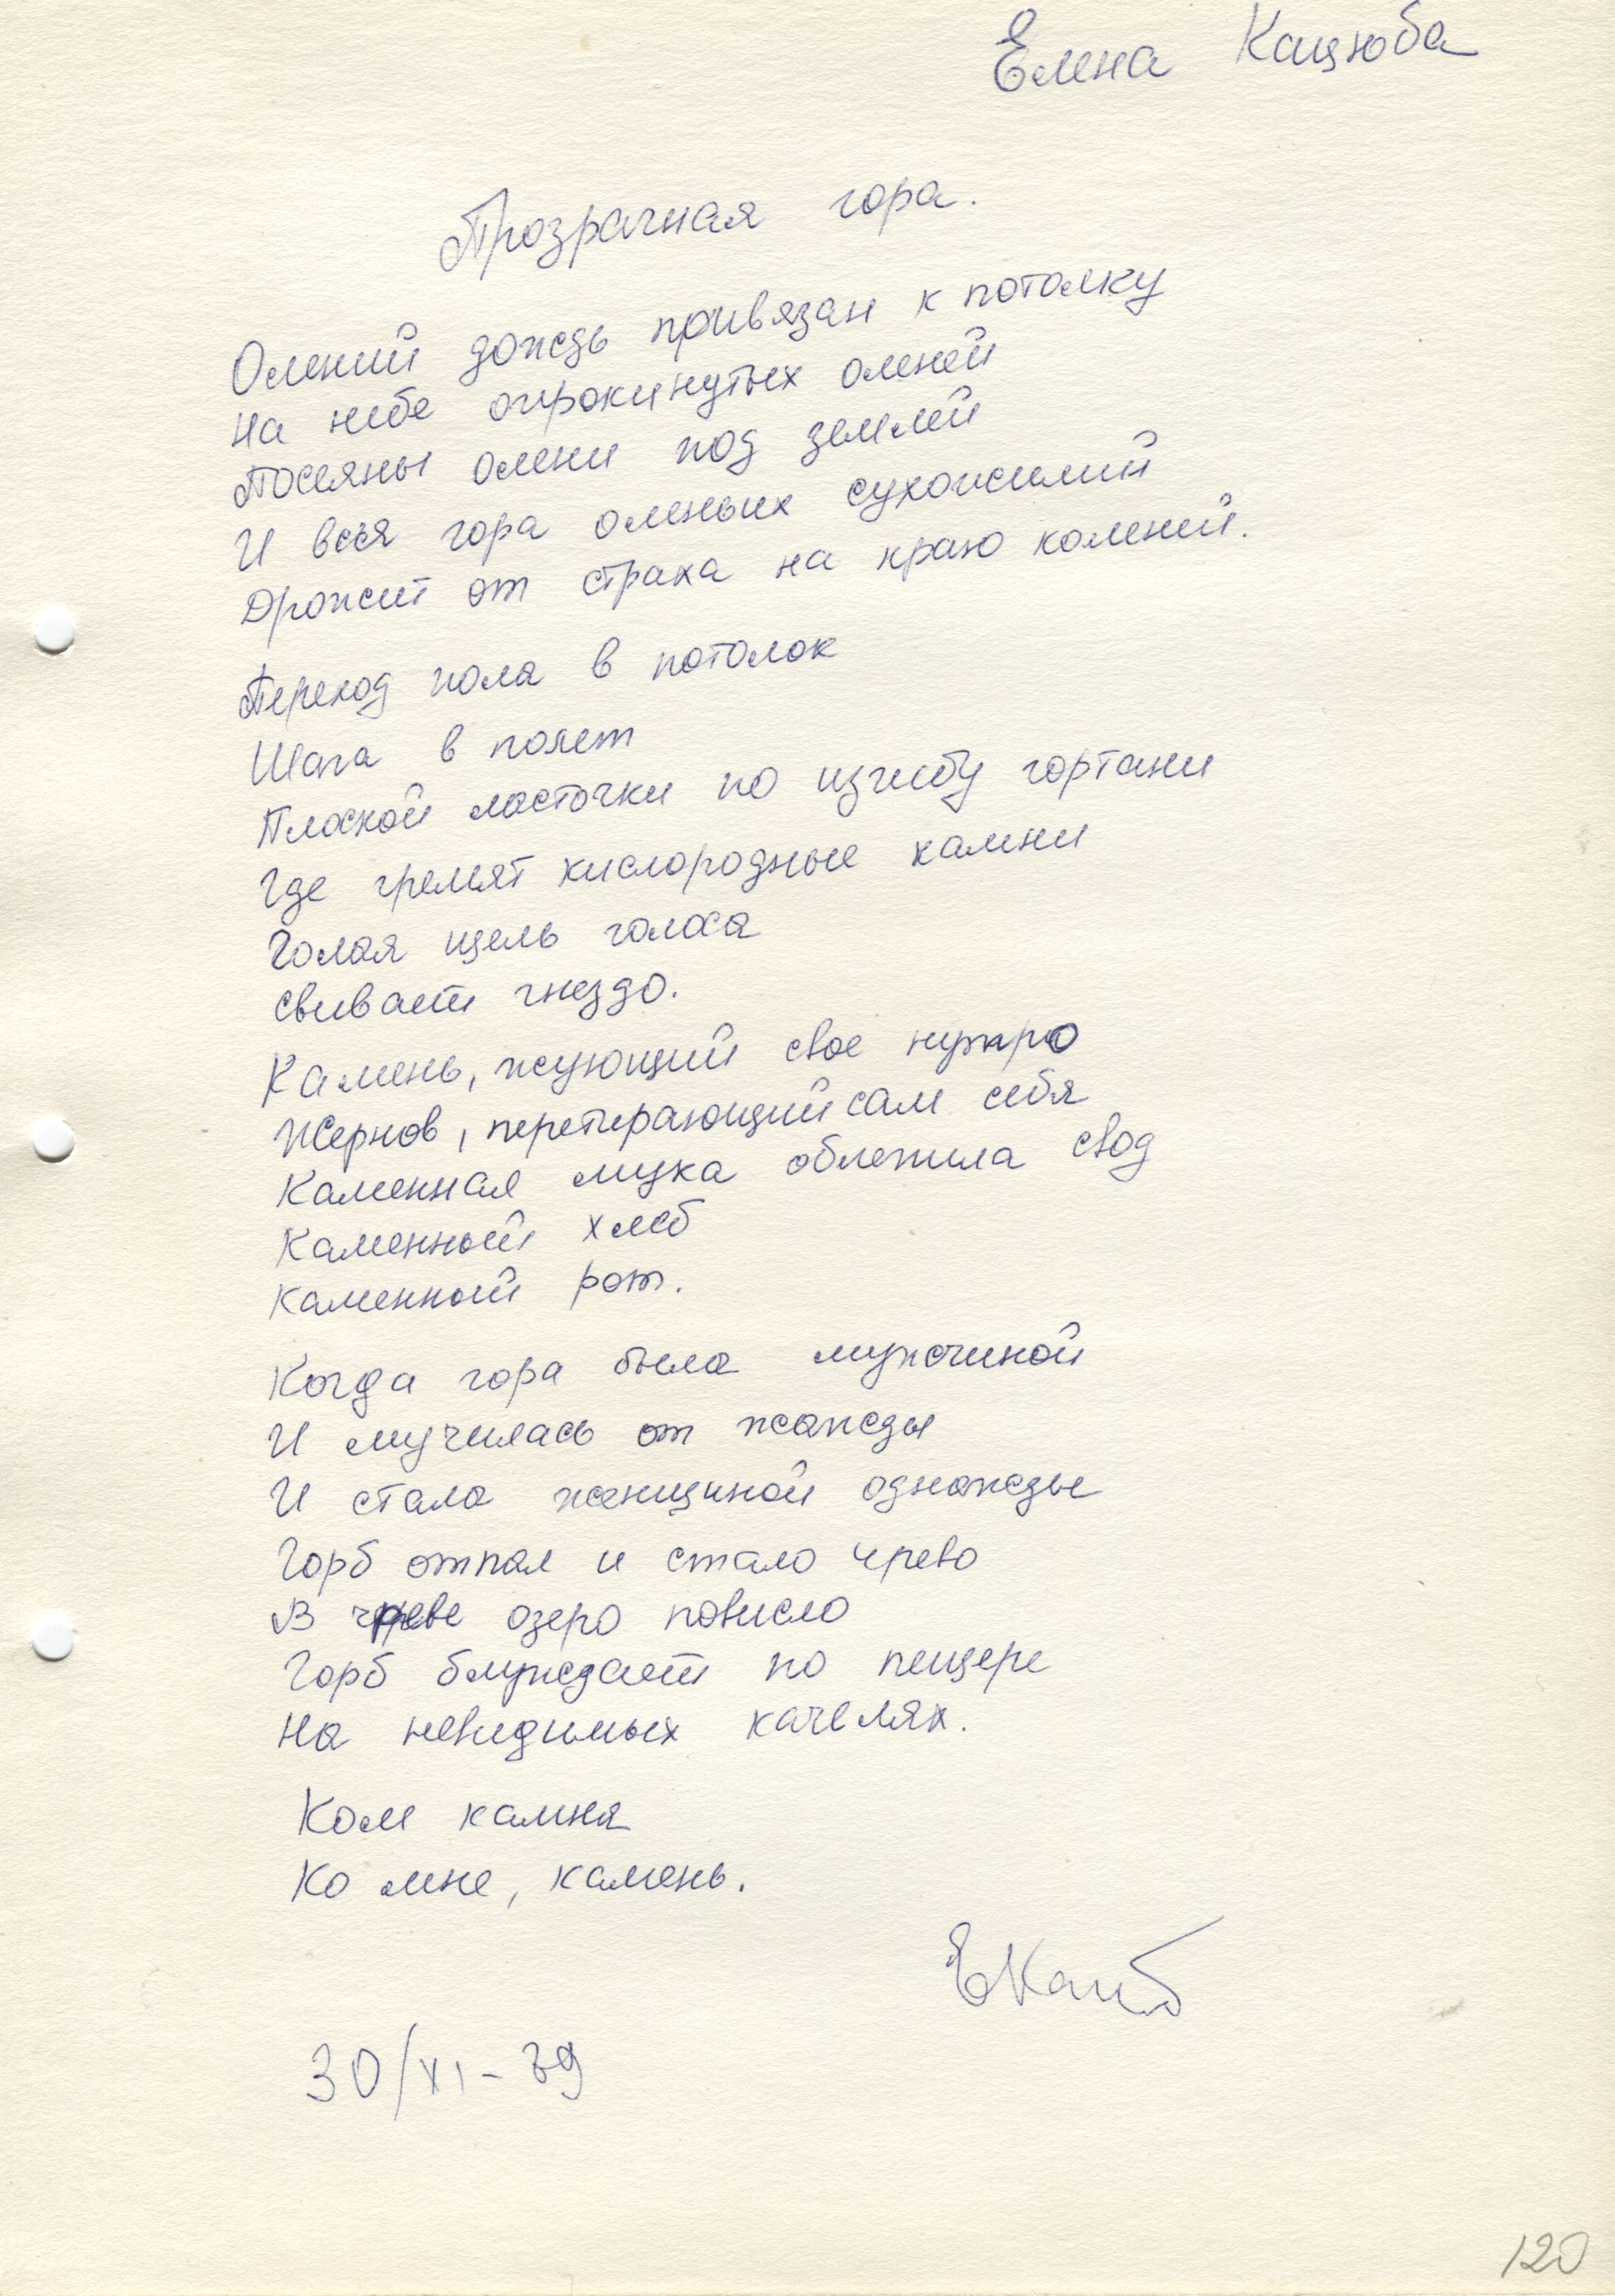 Елена Кацюба
Прозрачная гора.
Олений дождь привязан к потолку
На небе опрокинутых оленей
Посеяны олени под землей
И вся гора оленьих сухожилий
Дрожит от страха на краю коленей.
Переход пола в потолок
Шага в полет
Плоской ласточки по изгибу гортани
Где гремят кислородные камни
Голая щель голоса
свивает гнездо.
Камень, жующий свое нутро
Жернов, перетирающий сам себя
Каменная мука облепила свод
Каменный хлеб
каменный рот.
Когда гора была мужчиной
И мучилась от жажды
И стала женщиной однажды
Горб отпал и стало чрево
В чреве озеро повисло
Горб блуждает по пещере
На невидимых качелях.
Ком камня
Ко мне, камень.
ЕКацб
30/XI-89
120